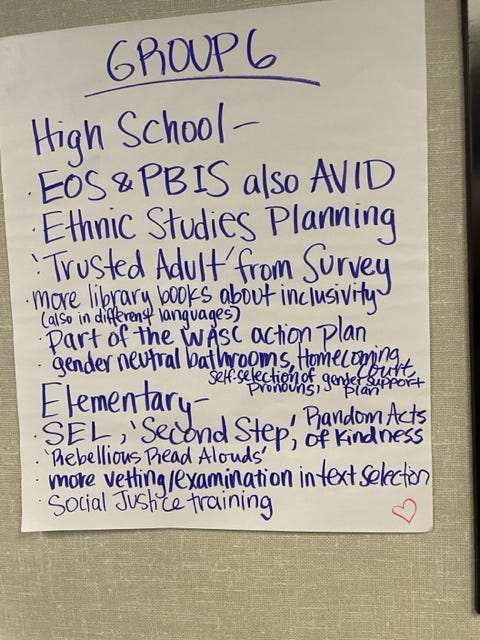 GROUP 6
High School-
· EOS & PBIS also AVID
· Ethnic Studies Planning
· 'Trusted Adult' from Survey
· more library books about inclusivity
(also in different languages)
· Part of the WASC action plan
· gender neutral bathrooms, Homecoming Court
self-selection of pronouns, gender support plan
Elementary-
· SEL, 'Second Step', Random Acts of Kindness
· 'Rebellious Read Alouds'
· more vetting/examination in text selection
· Social Justice training